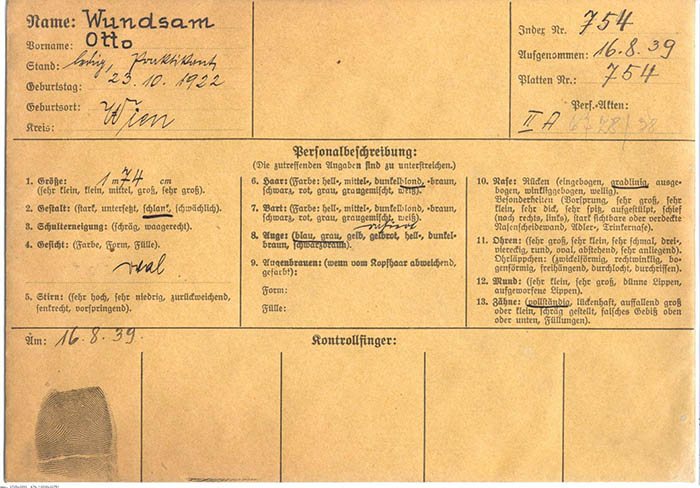 Name: Wundsam
Vorname: Otto
Stand: ledig, Praktikant
Geburtstag: 23. 10. 1922
Geburtsort: Wien
Kreis:
Index Nr. 754
Aufgenommen: 16. 8. 39
Platten Nr.: 754
Pers.-Akten:
II A 6728/38
Personalbeschreibung:
(Die zutreffenden Angaben sind zu unterstreichen.)
1. Größe: 1 m 74 cm
(sehr klein, klein, mittel, groß, sehr groß).
2. Gestalt: (stark, untersetzt, schlank, schwächlich).
3. Schulterneigung: (schräg, waagerecht).
4. Gesicht: (Farbe, Form, Fülle).
oval
5. Stirn: (sehr hoch, sehr niedrig, zurückweichend,
senkrecht, vorspringend).
6. Haar: (Farbe: hell-, mittel-, dunkelblond, -braun,
schwarz, rot, grau, graugemischt, weiß).
7. Bart: (Farbe: hell-, mittel-, dunkelblond, -braun,
schwarz, rot, grau, graugemischt, weiß).
rasiert
8. Auge: (blau, grau, gelb, gelbrot, hell-, dunkel-
braun, schwarzbraun).
9. Augenbrauen: (wenn vom Kopfhaar abweichend,
gefärbt):
Form:
Fülle:
10. Nase: Rücken (eingebogen, gradlinig, ausge-
bogen, winkliggebogen, wellig).
Besonderheiten (Vorsprung, sehr groß, sehr
klein, sehr dick, sehr spitz, aufgestülpt, schief
(nach rechts, links), stark sichtbare oder verdeckte
Nasenscheidewand, Adler-, Trinkernase).
11. Ohren: (sehr groß, sehr klein, sehr schmal, drei-
viereckig, rund, oval, abstehend, sehr anliegend).
Ohrläppchen: (zwickelförmig, rechtwinklig, bo-
genförmig, freihängend, durchlocht, durchrissen).
12. Mund: (sehr klein, sehr groß, dünne Lippen,
aufgeworfene Lippen).
13. Zähne: (vollständig, lückenhaft, auffallend groß
oder klein, schräg gestellt, falsches Gebiß oben
oder unten, Füllungen).
Am: 16. 8. 39.
Kontrollfinger: